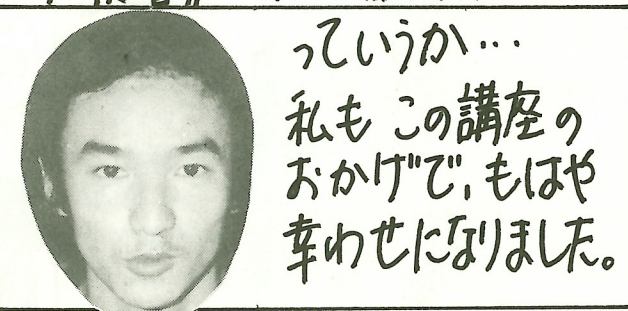 っていうか…
私もこの講座の
おかげで、もはや
幸わせになりました。